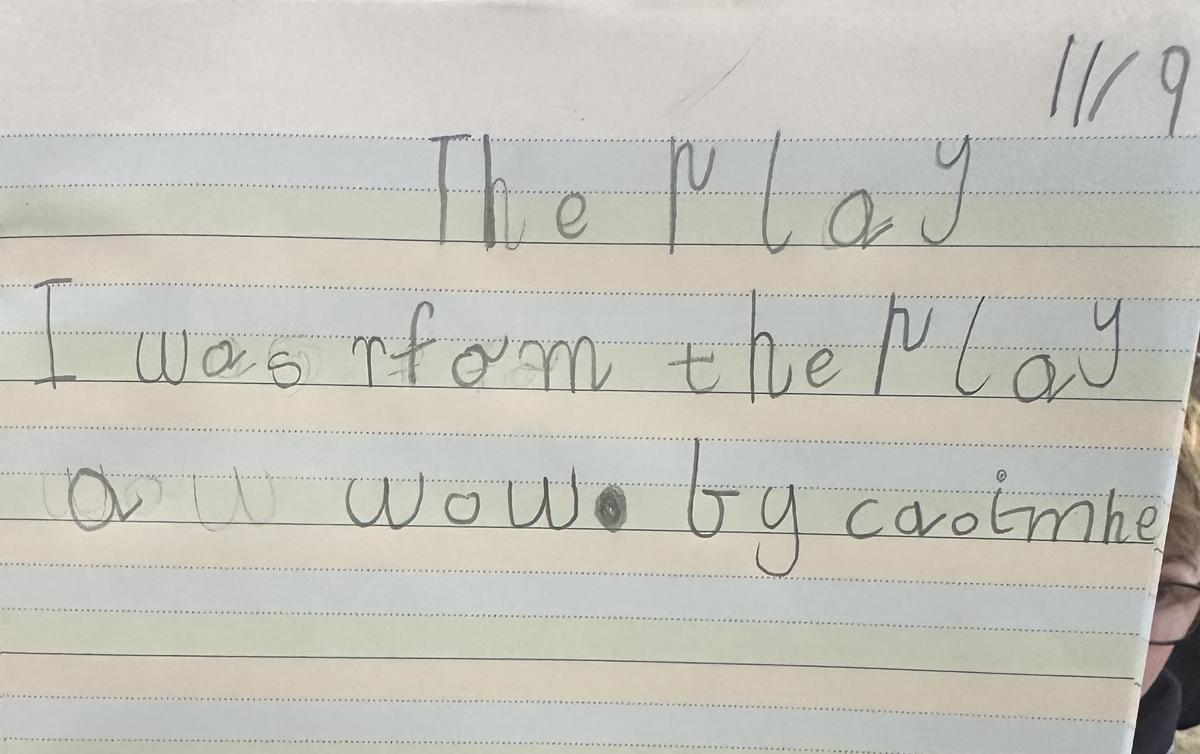 11/9
The Play
I was rfom the Play
a wow. by caoimhe